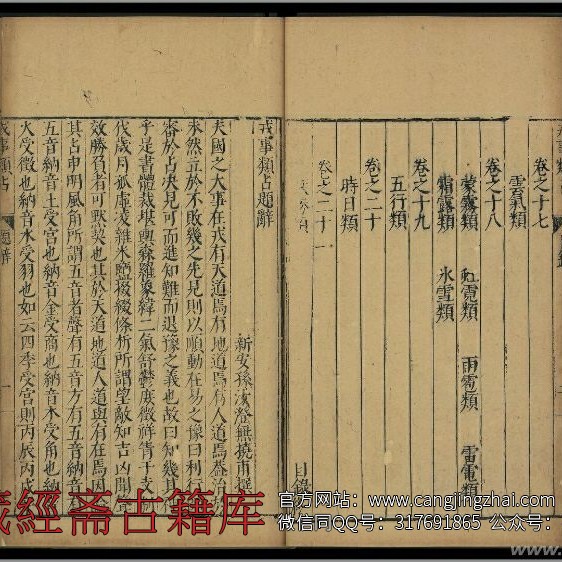 卷之十七
雲氣類
卷之十八
蒙霧類 虹霓類 雨雹類 雷電類
霜露類 氷雪類
卷之十九
五行類
卷之二十
時日類
卷之二十一
目錄
戎事類占題辭
新安孫浚登無撓甫撰
夫國之大事在戎有天道焉有地道焉有人道焉
未然立於不敗幾之先見則以順動在易之豫曰利行
審於占決見可而進知難而退豫之義也故曰知幾其
乎是書體裁堪輿森羅象緯二氣舒鬱庶徵
伐歲月孤虛凌雜米鹽掇綴條析所謂望敵知吉凶聞
效勝負者可默契也其於天道地道人道與有在焉因
其占申明風角所謂五音者聲有五音方有五音納
五音納音土受宮也納音金受商也納音木受角也納
火受徵也納音水受羽也如云四季受宮則丙辰丙戌
戎事類占
題辭
一
藏經斋古籍库
官方网站：www.cangjingzhai.com
微信同QQ号：317691865 公众号：
www.